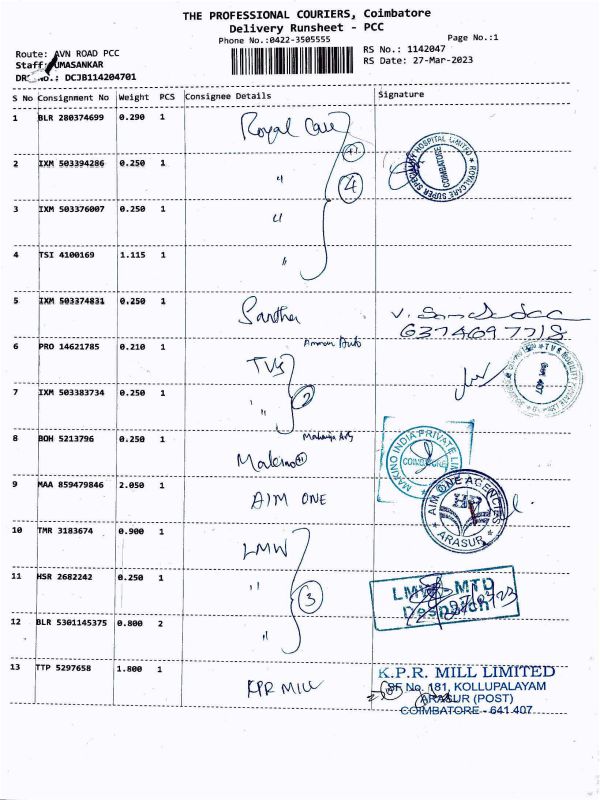 THE PROFESSIONAL COURIERS, Coimbatore
Delivery Runsheet - PCC
Phone No.:0422-3505555
Page No.:1
Route: AVN ROAD PCC
RS No.: 1142047
Staff: UMASANKAR
RS Date: 27-Mar-2023
No.: DCJB114204701
S No Consignment No Weight PCS Consignee Details Signature
1 BLR 280374699 0.290 1 Royal Care
+1
ROYALCARE SUPER SPECIALITY HOSPITAL LIMITED
COIMBATORE
2 IXM 503394286 0.250 1 "
4
3 IXM 503376007 0.250 1 "
4 TSI 4100169 1.115 1 "
5 IXM 503374831 0.250 1 Santha
6374697718
6 PRO 14621785 0.210 1 TVS
7 IXM 503383734 0.250 1 "
2
8 BOH 5213796 0.250 1 Makino +1
MAKINO INDIA PRIVATE LIM
COIMBATORE
9 MAA 859479846 2.050 1 AIM ONE
AIM ONE AGENCIES
ARASUR
10 TMR 3183674 0.900 1 LMW
11 HSR 2682242 0.250 1 "
3
LMW-MTD
Despatch
12 BLR 5301145375 0.800 2 "
13 TTP 5297658 1.800 1 KPR MILL
K.P.R. MILL LIMITED
SF No. 181, KOLLUPALAYAM
ARASUR (POST)
COIMBATORE - 641 407